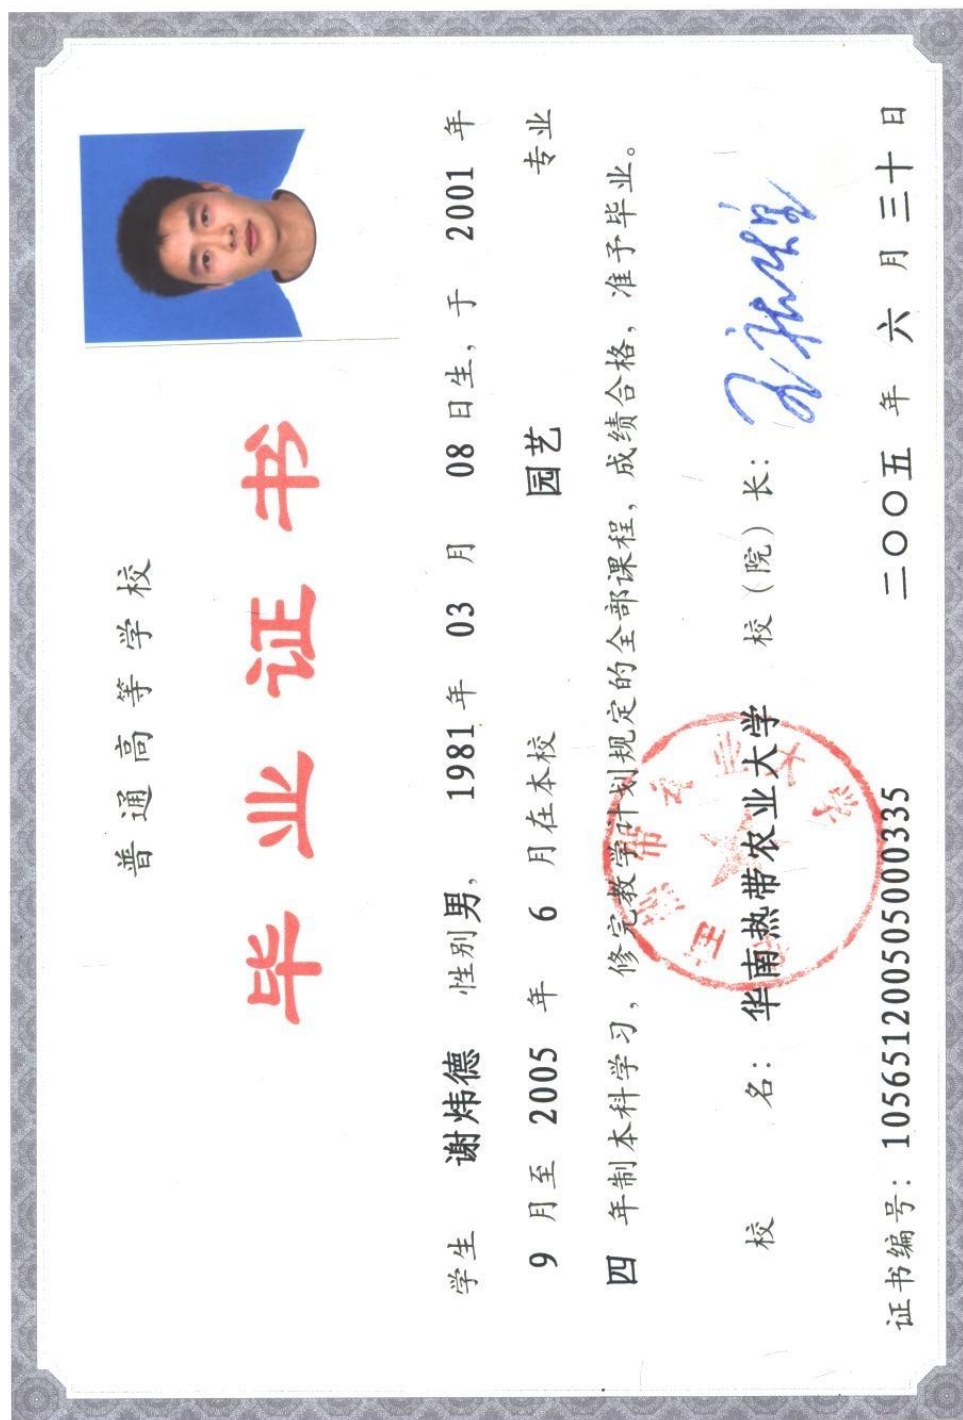 普通高等学校
毕业证书
学生 谢炜德 性别男, 1981年 03 月 08日生,于 2001 年
9 月至 2005 年 6 月在本校 园艺 专业
四 年制本科学习,修完教学计划规定的全部课程,成绩合格,准予毕业。
校 名: 华南热带农业大学 校(院)长:
证书编号: 105651200505000335 二〇〇五 年 六 月 三十 日